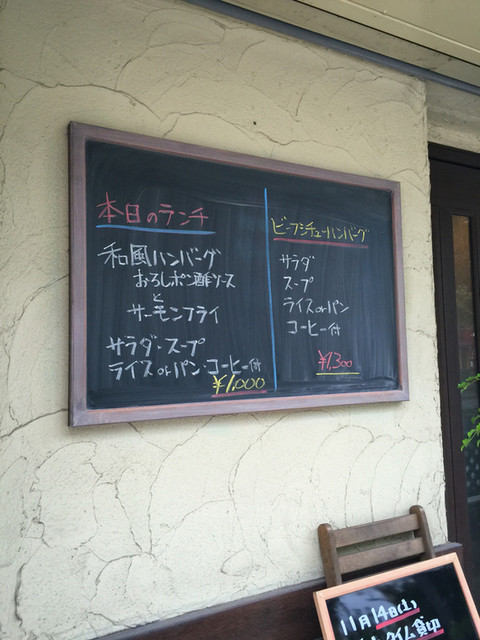 本日のランチ
和風ハンバーグ
おろしポン酢ソース
と
サーモンフライ
サラダ・スープ
ライスorパン・コーヒー付
¥1,000
ビーフシチューハンバーグ
サラダ
スープ
ライスorパン
コーヒー付
¥1,300
11月14日(土)
タイム貸切